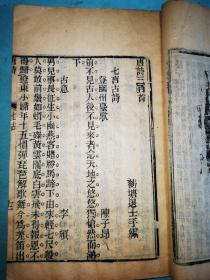 唐詩三百首
蘅塘退士手編
七言古詩
登幽州臺歌 陳子昂
前不見古人後不見來者念天地之悠悠獨愴然而涕
下
古意 李頎
男兒事長征少小幽燕客賭勝馬蹄下由來輕七尺殺
人莫敢前鬚如蝟毛磔黃雲隴底白雲飛未得報恩不
得歸遼東小婦年十五慣彈琵琶解歌舞今為羌笛出